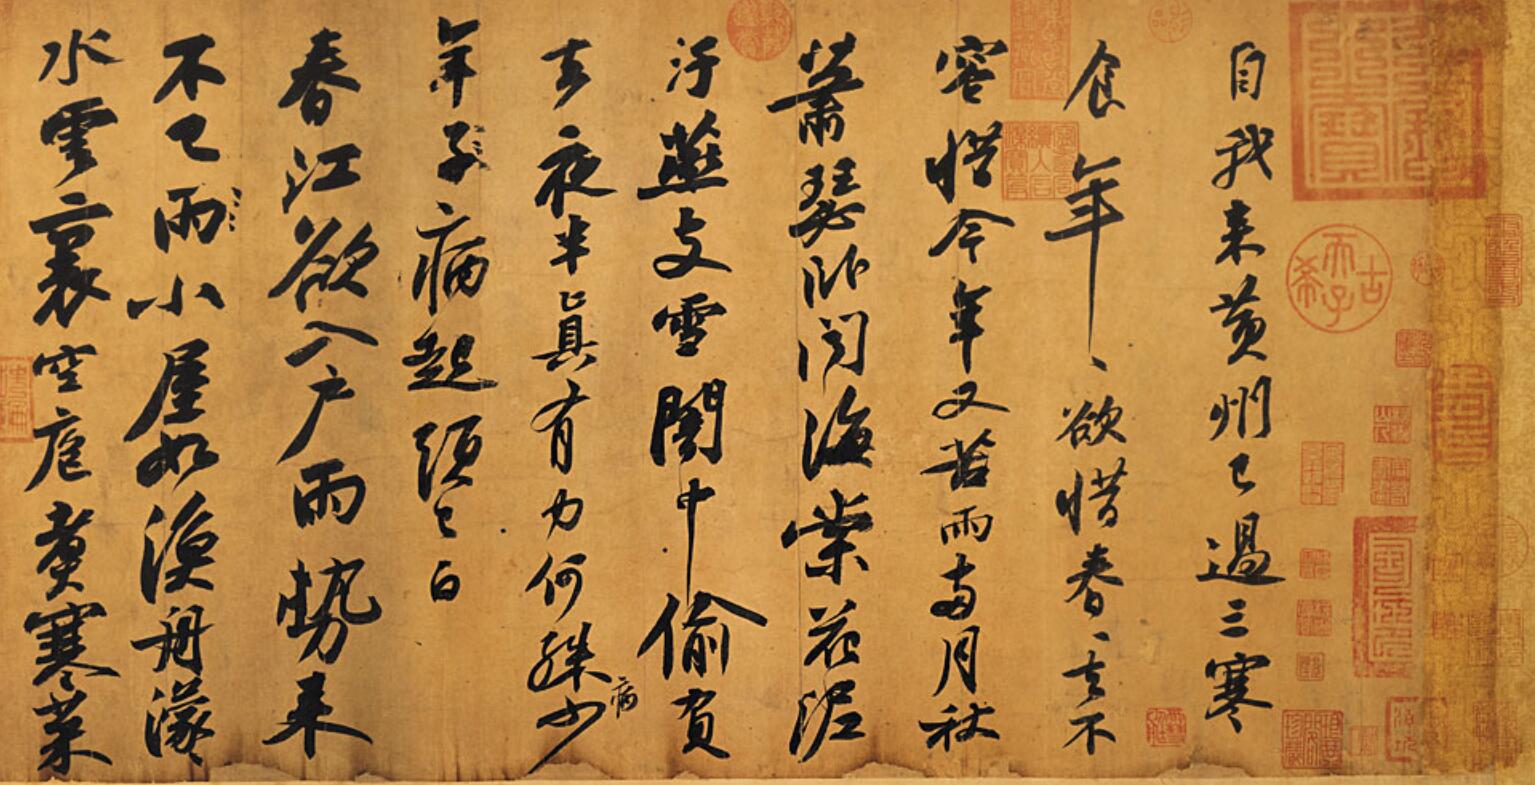 自我来黄州已過三寒
食年〻欲惜春〻去不
容惜今年又苦雨兩月秋
蕭瑟卧聞海棠花泥
汙燕支雪闇中偷負
去夜半真有力何殊病少
年子病起頭已白
春江欲入户雨勢来
不已雨小屋如漁舟濛〻
水雲裏空庖煮寒菜
古希天子